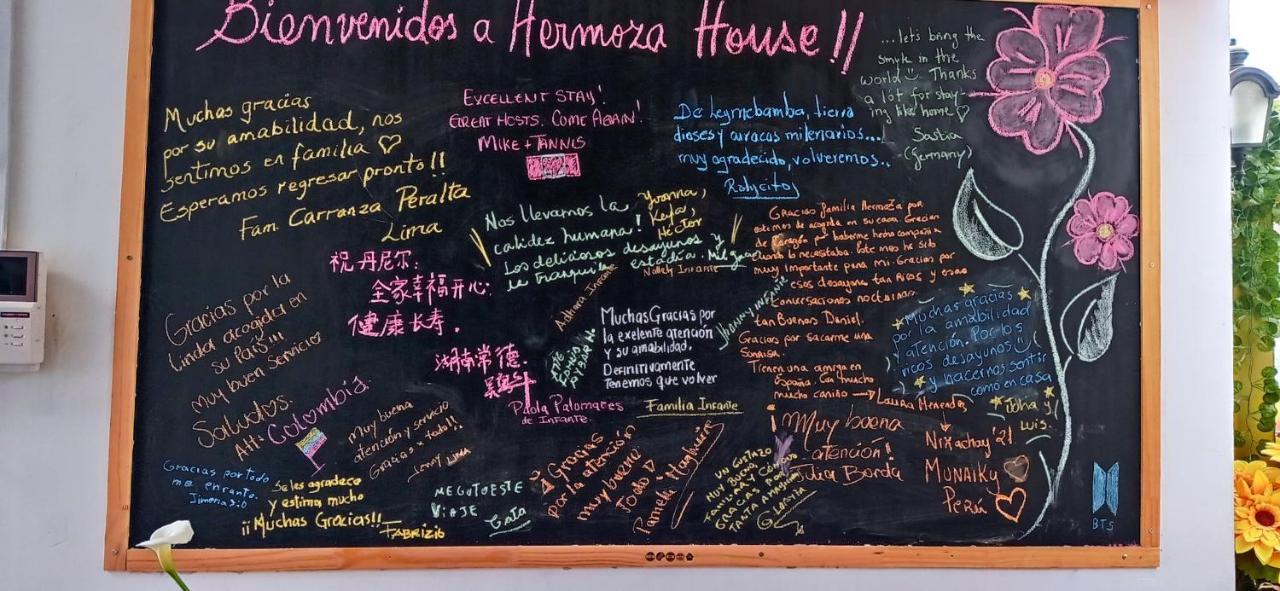 Bienvenidos a Hermoza House!!
Muchas gracias
por su amabilidad, nos
sentimos en familia
Esperamos regresar pronto!!
Fam. Carranza Peralta
Lima
EXCELLENT STAY!
GREAT HOSTS. COME AGAIN!
MIKE + TANNIS
De Leymebamba, tierra
dioses y curacas milenarios...
muy agradecido, volveremos..
Ralycitos
...let's bring the
smyle in the
world Thanks
a lot for stay-
ing like home
Saskia
(Germany)
祝丹尼尔:
全家幸福开心.
健康长寿.
湖南常德.
Nos llevamos la
calidez humana!
Los deliciosos desayunos y
la tranquila estadía. Mil gracias
Yvonna,
Keyla,
Héctor
Gracias familia Hermoza por
de corazón por haberme hecho compañía
cuando lo necesitaba. Este mes ha sido
muy importante para mi. Gracias por
esos desayunos tan Ricos y esas
Conversaciones nocturnas
tan Buenas Daniel.
Gracias por sacarme una
Sonrisa.
Tienen una amiga en
España. Con mucho
mucho cariño → Laura Menendes
Gracias por la
linda acogida en
su País!!!
muy buen servicio
Saludos.
Att: Colombia
Nolleh Infante
Jhanny Infante
Muchas Gracias por
la exelente atención
y su amabilidad,
Definitivamente
Tenemos que volver
Familia Infante
Paola Palomares
de Infante
Muchas gracias
por la amabilidad
y atención. Por los
ricos desayunos
y hacernos sentir
como en casa
Joha y
Luis.
Muy buena
atención y servicio
Gracias x todo!!
Jenny Lima
Gracias por todo
me encanto.
Jimena
Se les agradece
y estima mucho
¡¡Muchas Gracias!!
Fabrizio
ME GUTOESTE
VIAJE
Gracias
por la atención
muy bueno
todo
Pamela
UN GUSTAZO
MUY BUENA
GRACIAS POR
TANTA AMABILIDAD
Muy buena
atención!
Julia Borda
Nixachay '21
MUNAIKY
Perú
BTS